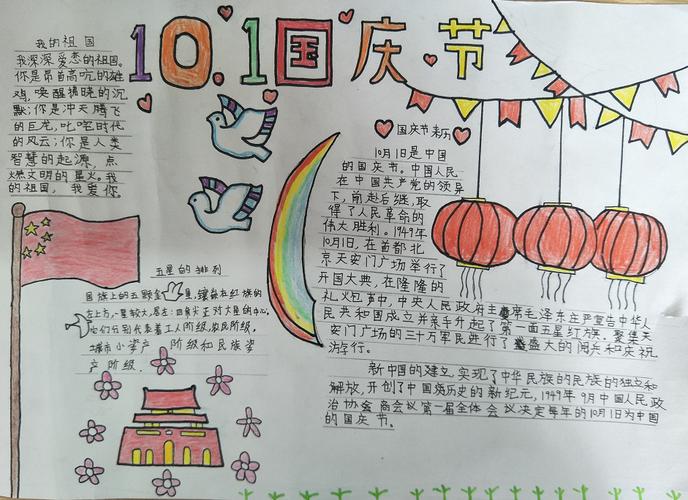 10.1国庆节
我的祖国
我深深爱恋的祖国。
你是昂首高吭的雄
鸡，唤醒拂晓的沉
默；你是冲天腾飞
的巨龙，叱咤时代
的风云；你是人类
智慧的起源，点
燃文明的星火。我
的祖国，我爱你。
五星的排列
国旗上的五颗金星，镶嵌在红旗的
左上方，一星较大，居左；四
正对大星的中心，
它们分别代表着工人阶级，农民阶级，
城市小资产阶级和民族资
产阶级.
国庆节来历
10月1日是中国
的国庆节。中国人民
在中国共产党的领导
下，前赴后继，取
得了人民革命的
伟大胜利。1949年
10月1日，在首都北
京天安门广场举行了
开国大典，在隆隆的
礼炮声中，中央人民政府主席毛泽东庄严宣告中华人
民共和国成立并亲手升起了第一面五星红旗。聚集天
安门广场的三十万军民进行了盛大的阅兵和庆祝
游行。
新中国的建立，实现了中华民族的民族的独立和
解放，开创了中国历史的新纪元，1949年9月中国人民政
治协会商会议第一届全体会议决定每年的10月1为中国
的国庆节。